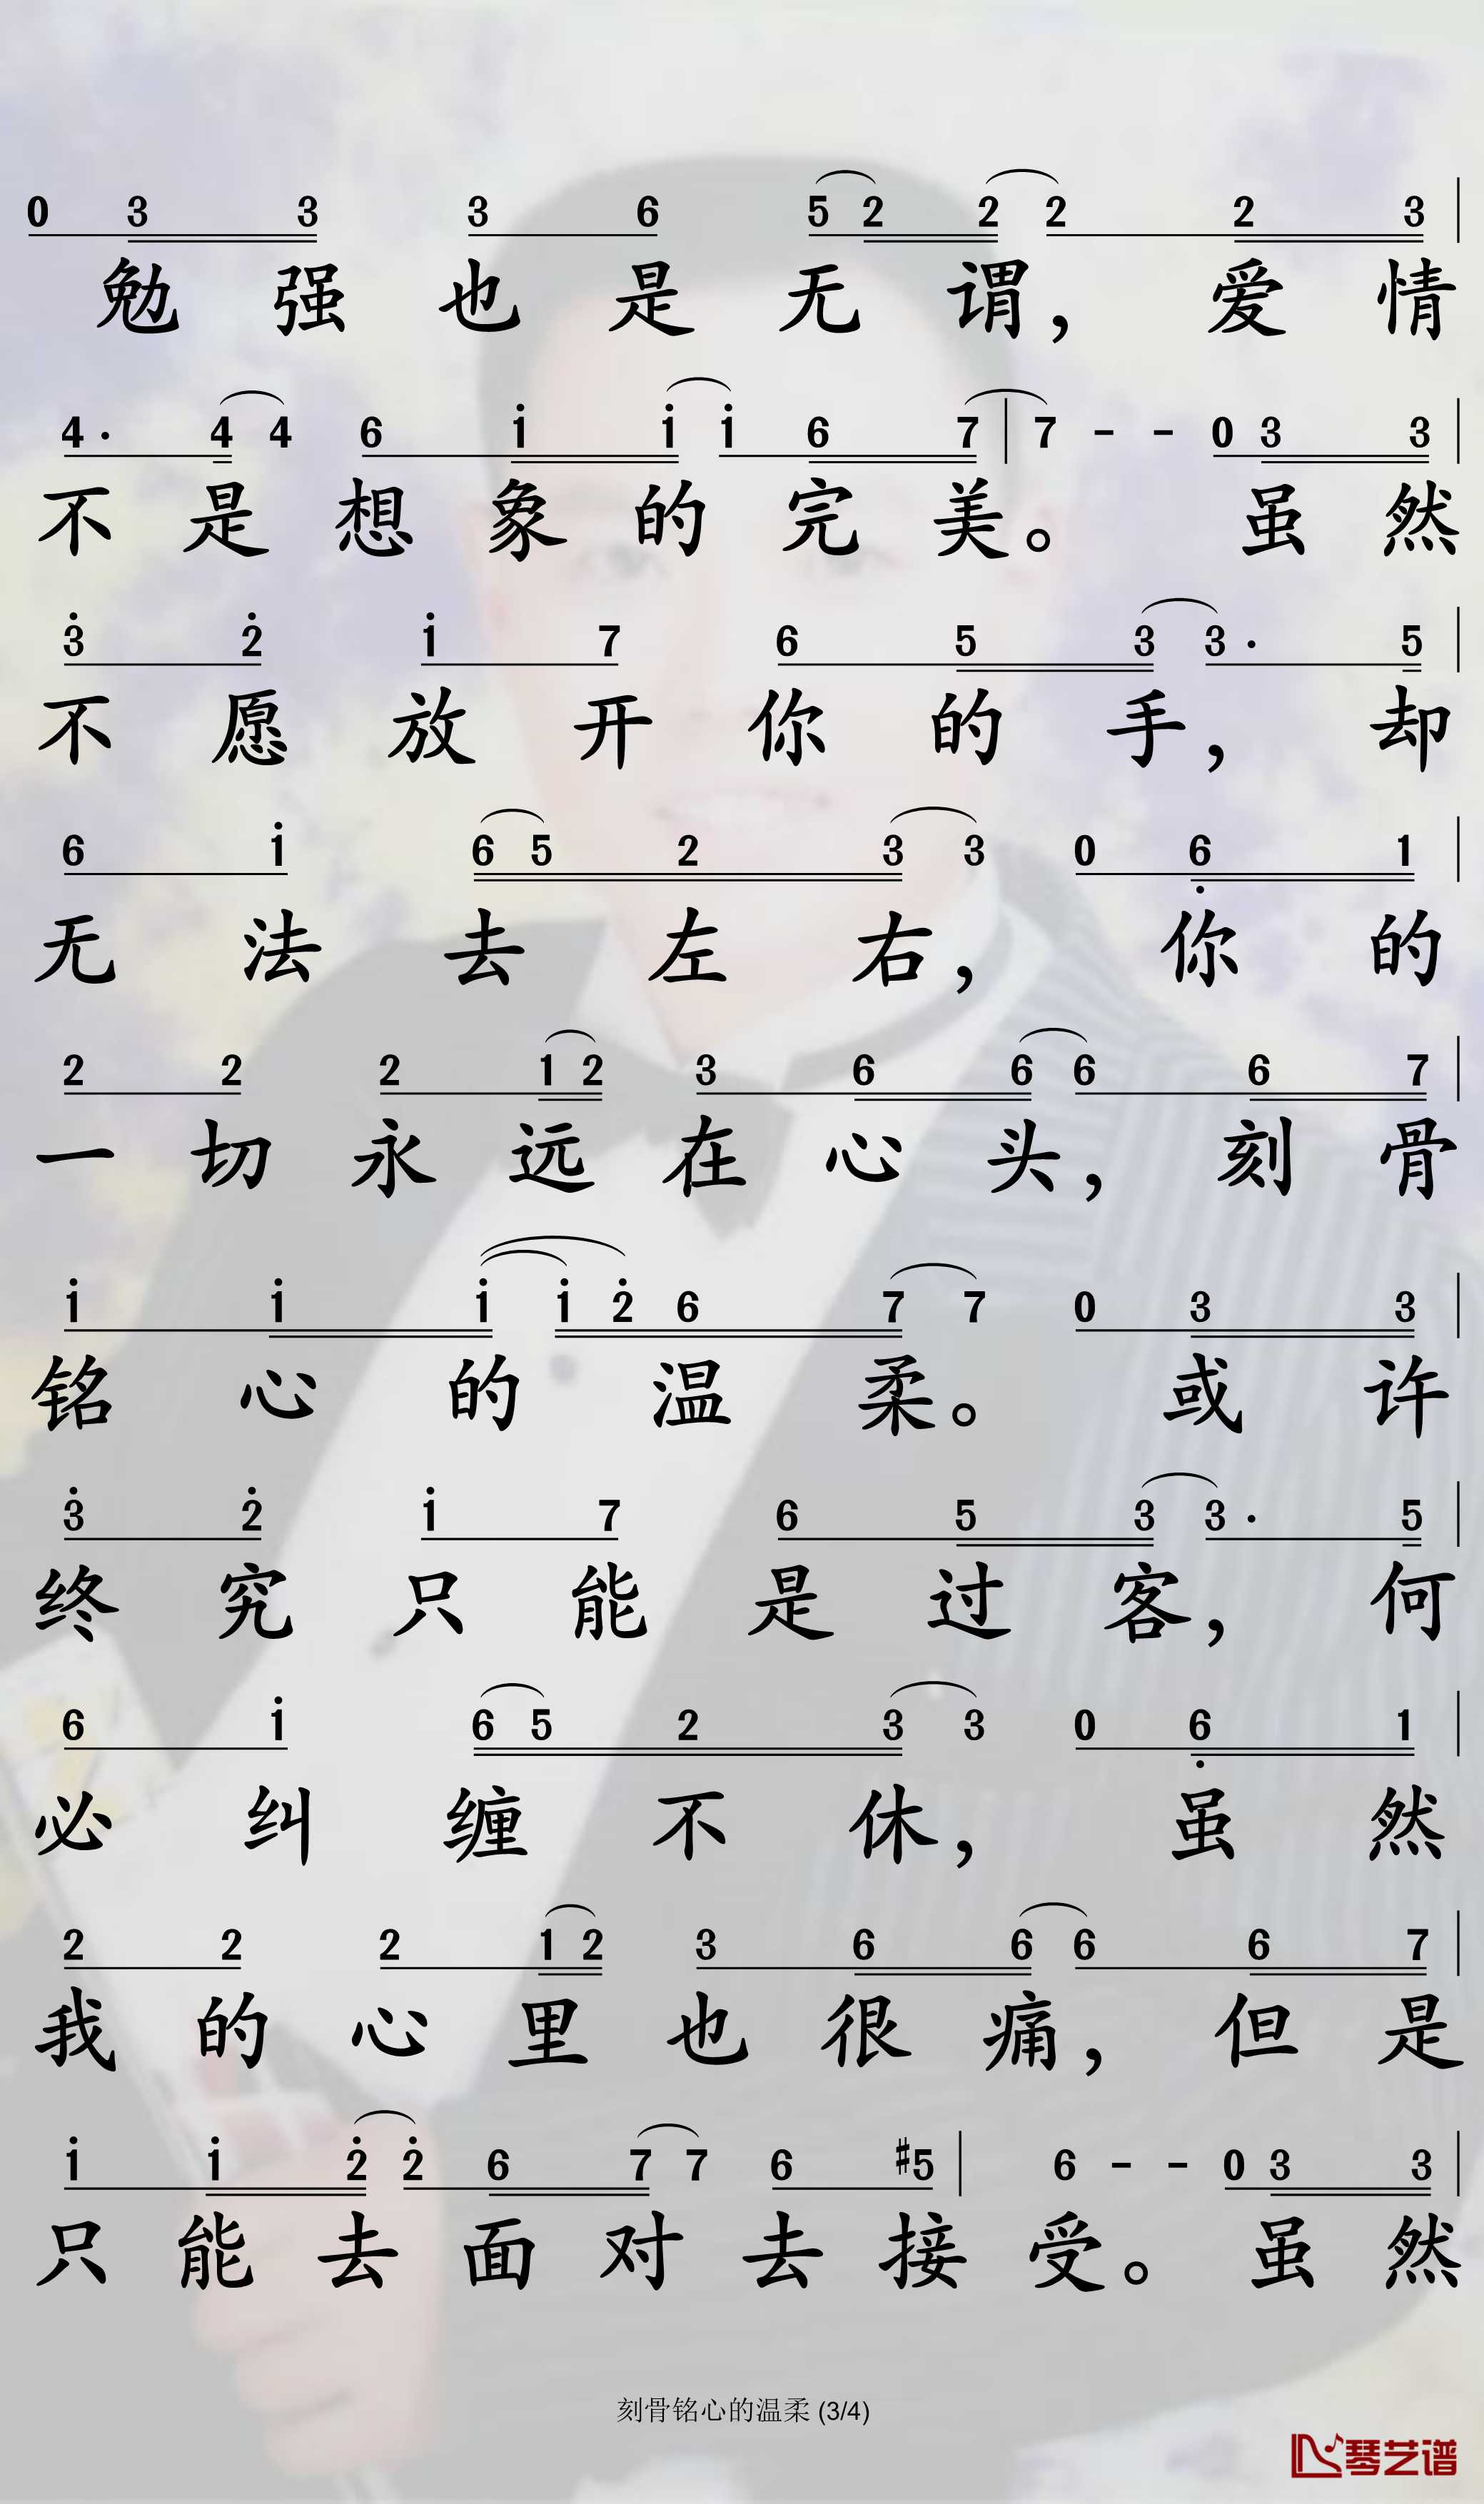 0 3 3 3 6 5 2 2 2 2 3 |
勉强也是无谓，爱情
4 · 4 4 6 i i i 6 7 | 7 - - 0 3 3 |
不是想象的完美。虽然
3̇ 2̇ i 7 6 5 3 3 · 5 |
不愿放开你的手，却
6 i 6 5 2 3 3 0 6̣ 1 |
无法去左右，你的
2 2 2 1 2 3 6 6 6 6 7 |
一切永远在心头，刻骨
i i i i 2̇ 6 7 7 0 3 3 |
铭心的温柔。或许
3̇ 2̇ i 7 6 5 3 3 · 5 |
终究只能是过客，何
6 i 6 5 2 3 3 0 6̣ 1 |
必纠缠不休，虽然
2 2 2 1 2 3 6 6 6 6 7 |
我的心里也很痛，但是
i i 2̇ 2̇ 6 7 7 6 #5 | 6 - - 0 3 3 |
只能去面对去接受。虽然
刻骨铭心的温柔 (3/4)
琴艺谱